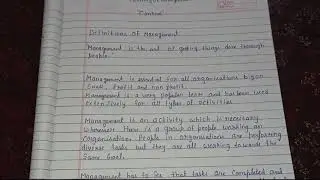 Definitions of Management
Management is the art of getting things done through
people.
Management is essential for all organisations big or
small, Profit and non profit.
Management is a very popular term and has been used
extensively for all types of activities
Management is an activity which is necessary
wherever there is a group of people working an
organisation. People in organisations are performing
diverse tasks but they are all working towards the
same Goal.
Management has to see that tasks are completed and